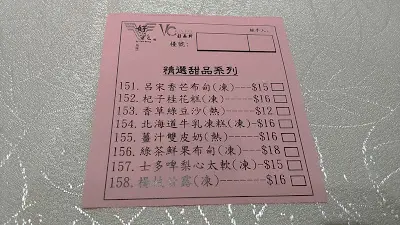 VC
檯號:
精選甜品系列
151. 呂宋香芒布甸(凍)---$15
152. 杞子桂花糕(凍)----$16
153. 香草綠豆沙(熱)----$12
154. 北海道牛乳凍糕(凍)--$16
155. 薑汁雙皮奶(熱)----$16
156. 綠茶鮮果布甸(凍)---$18
157. 士多啤梨心太軟(凍)--$15
158. 楊枝甘露(凍)-----$16